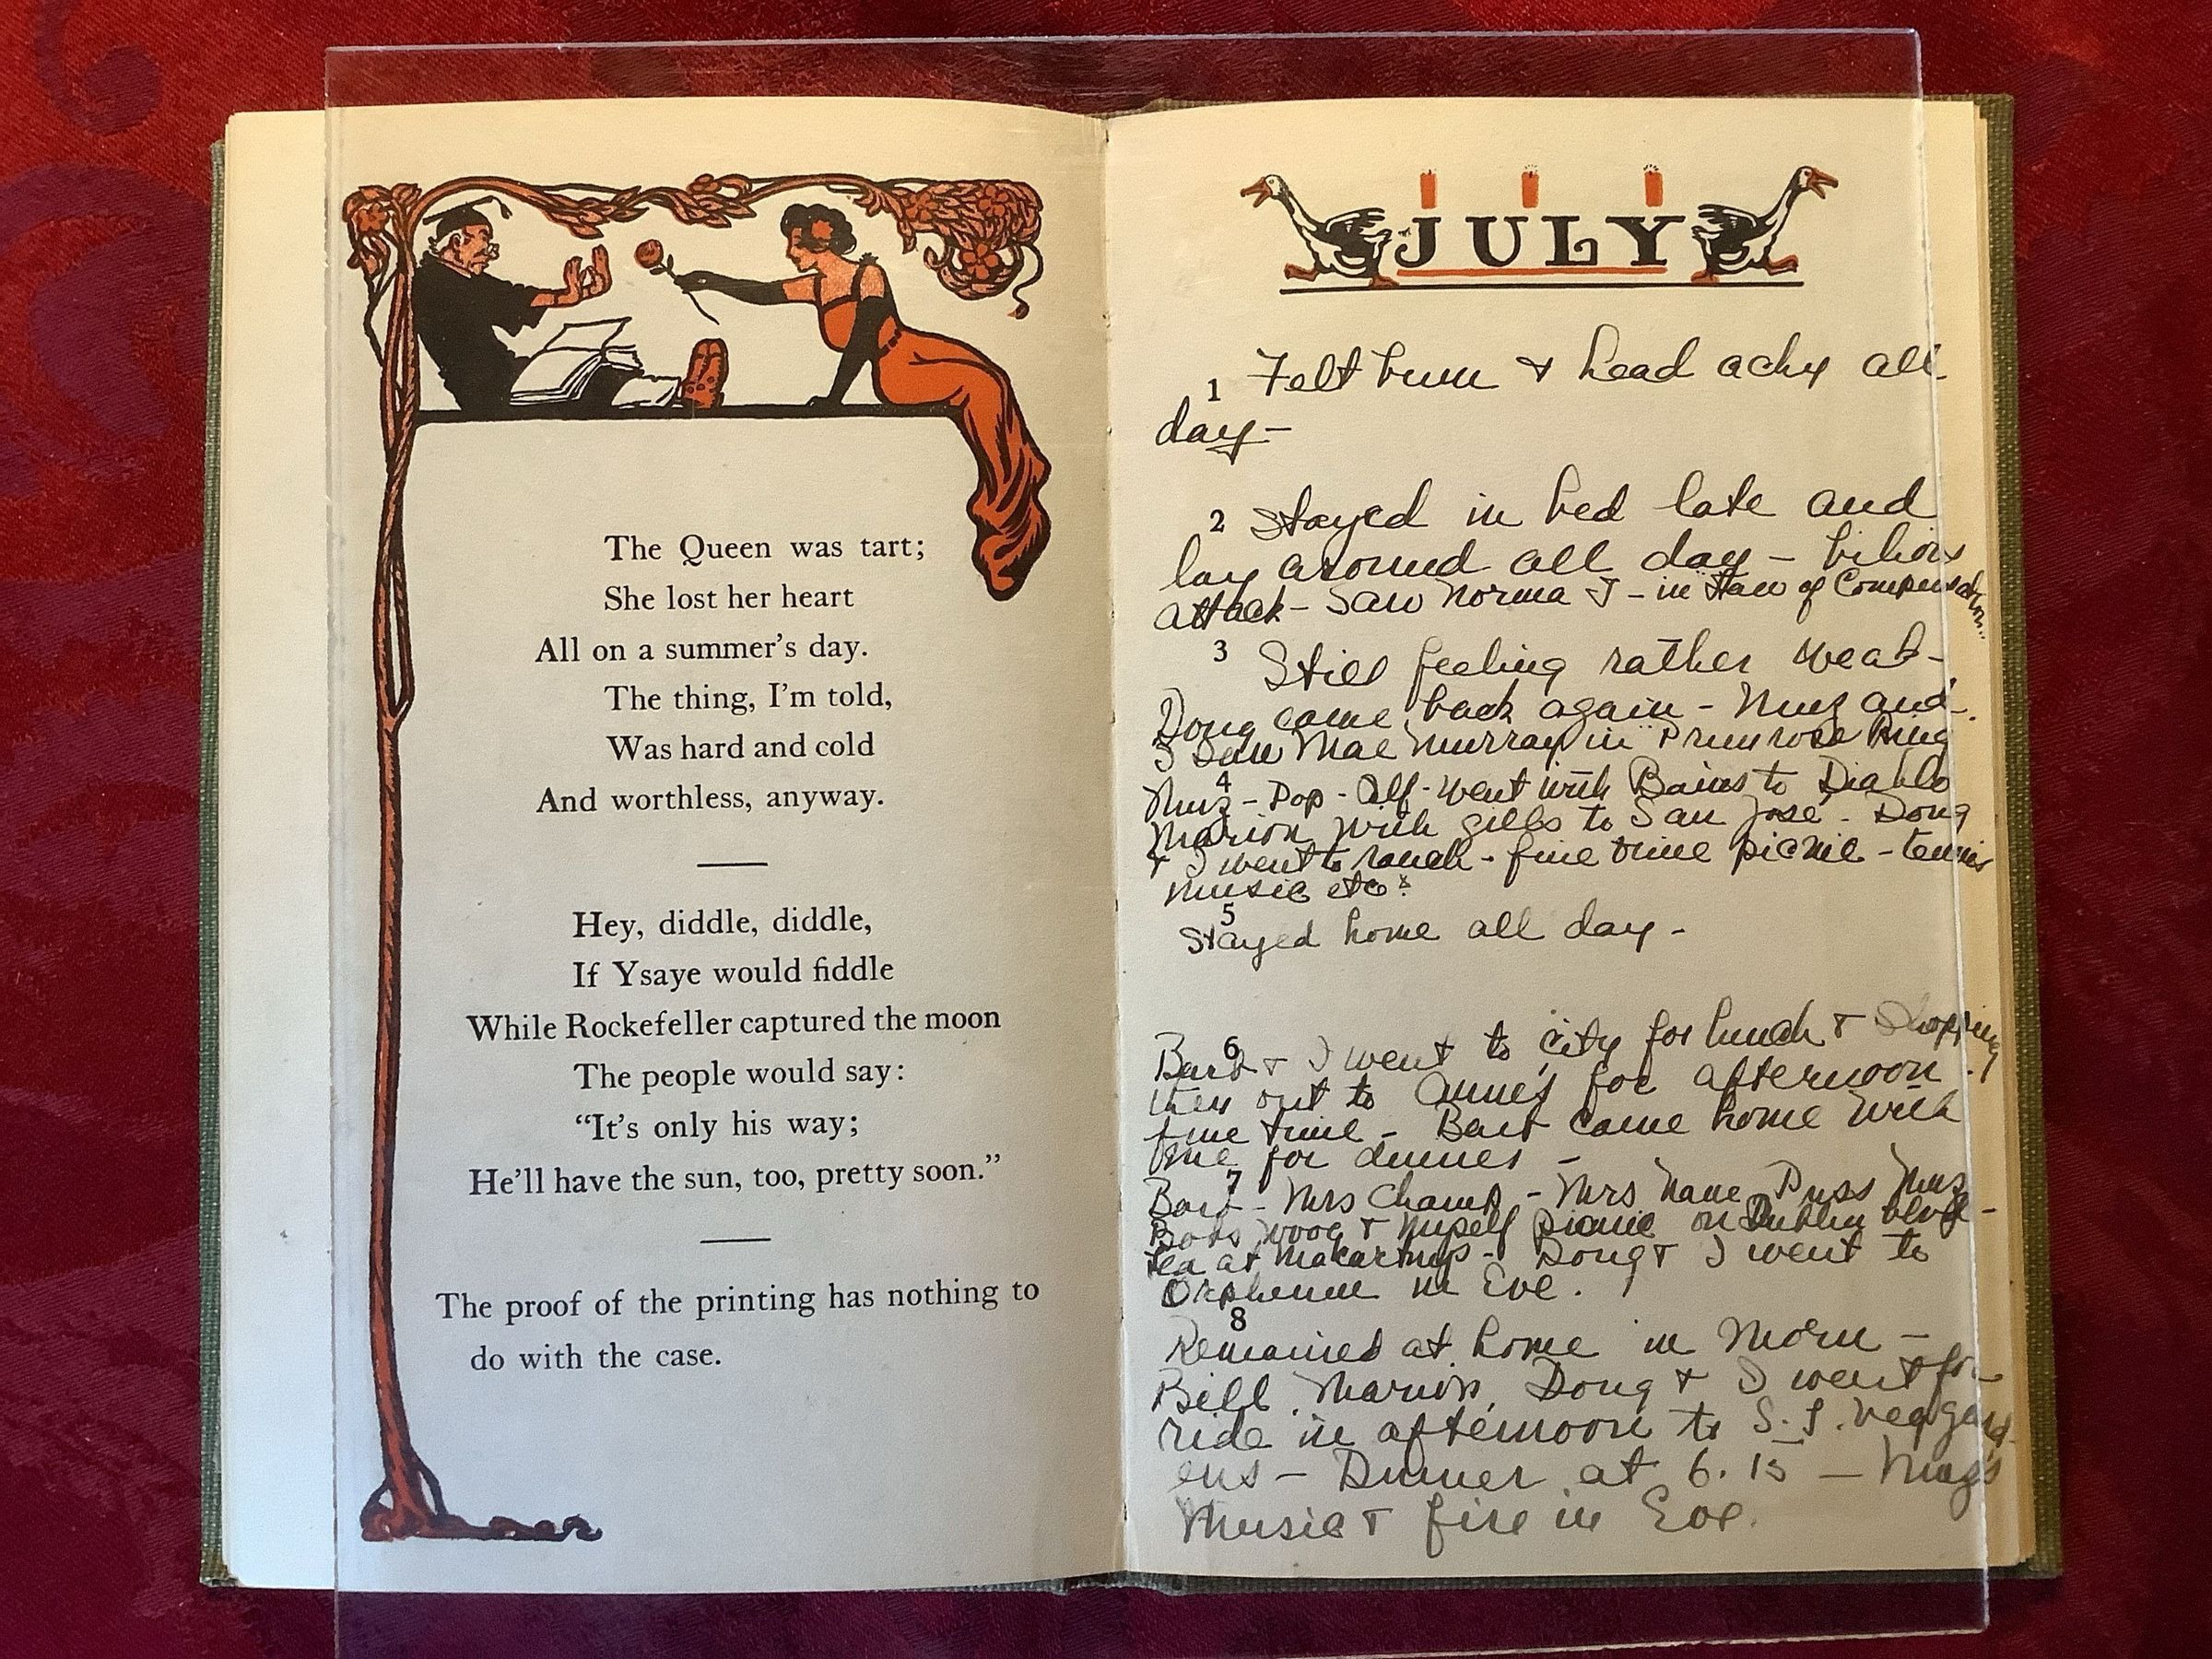 The Queen was tart;
She lost her heart
All on a summer's day.
The thing, I'm told,
Was hard and cold
And worthless, anyway.
Hey, diddle, diddle,
If Ysaye would fiddle
While Rockefeller captured the moon
The people would say:
"It's only his way;
He'll have the sun, too, pretty soon."
The proof of the printing has nothing to
do with the case.
JULY
1 Felt bum & head achy all
day-
2 Stayed in bed late and
lay around all day - bilious
attack - Saw Norma T - in Law of Compensation..
3 Still feeling rather weak-
Doug came back again - Muz and
I saw Mae Murray in "Primrose Ring
4
Muz - Pop - Alf - went with Bains to Diablo
Marion with Gills to San José - Doug
& I went to ranch - fine time picnic - tennis
music etc
5
Stayed home all day -
6
Bart & I went to city for lunch & shopping
then out to Anne's for afternoon.
fine time - Bart came home with
me for dinner -
7
Bart - Mrs Champ - Mrs Puss Muz
& myself picnic on Dublin blvd -
tea at - Doug & I went to
Orpheum in Eve.
8
Remained at home in Morn -
Bill, Marion, Doug & I went for
ride in afternoon to S.F. veg gard-
ens - Dinner at 6.15 -
Music & fire in Eve.